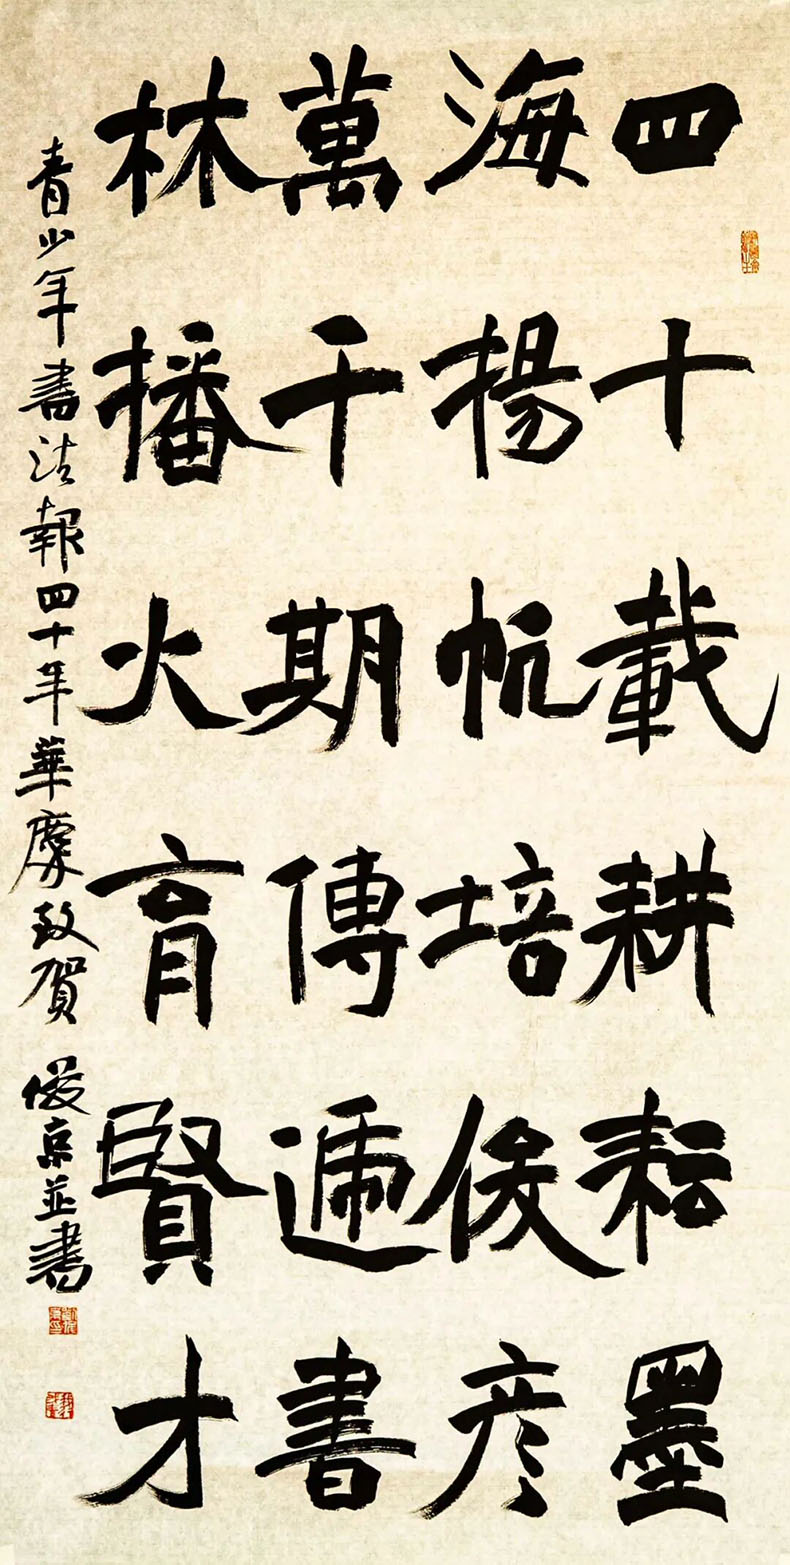 四十載耕耘墨
海揚帆培俊彦
萬千期傳遞書
林播火育賢才
青少年書法報四十年華慶致賀 俊京並書